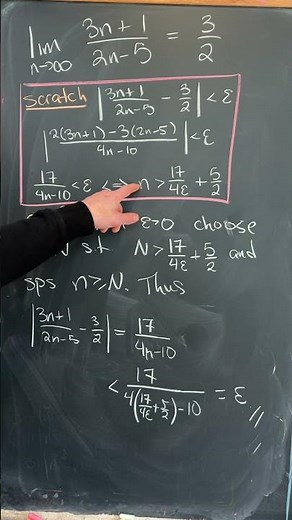 lim n→∞ (3n+1)/(2n-5) = 3/2
Scratch |(3n+1)/(2n-5) - 3/2| < ε
|(2(3n+1)-3(2n-5))/(4n-10)| < ε
17/(4n-10) < ε <=> n > 17/(4ε) + 5/2
ε>0 choose
s.t. N > 17/(4ε) + 5/2 and
sps n≥N. Thus
|(3n+1)/(2n-5) - 3/2| = 17/(4n-10)
< 17/(4(17/(4ε)+5/2)-10) = ε